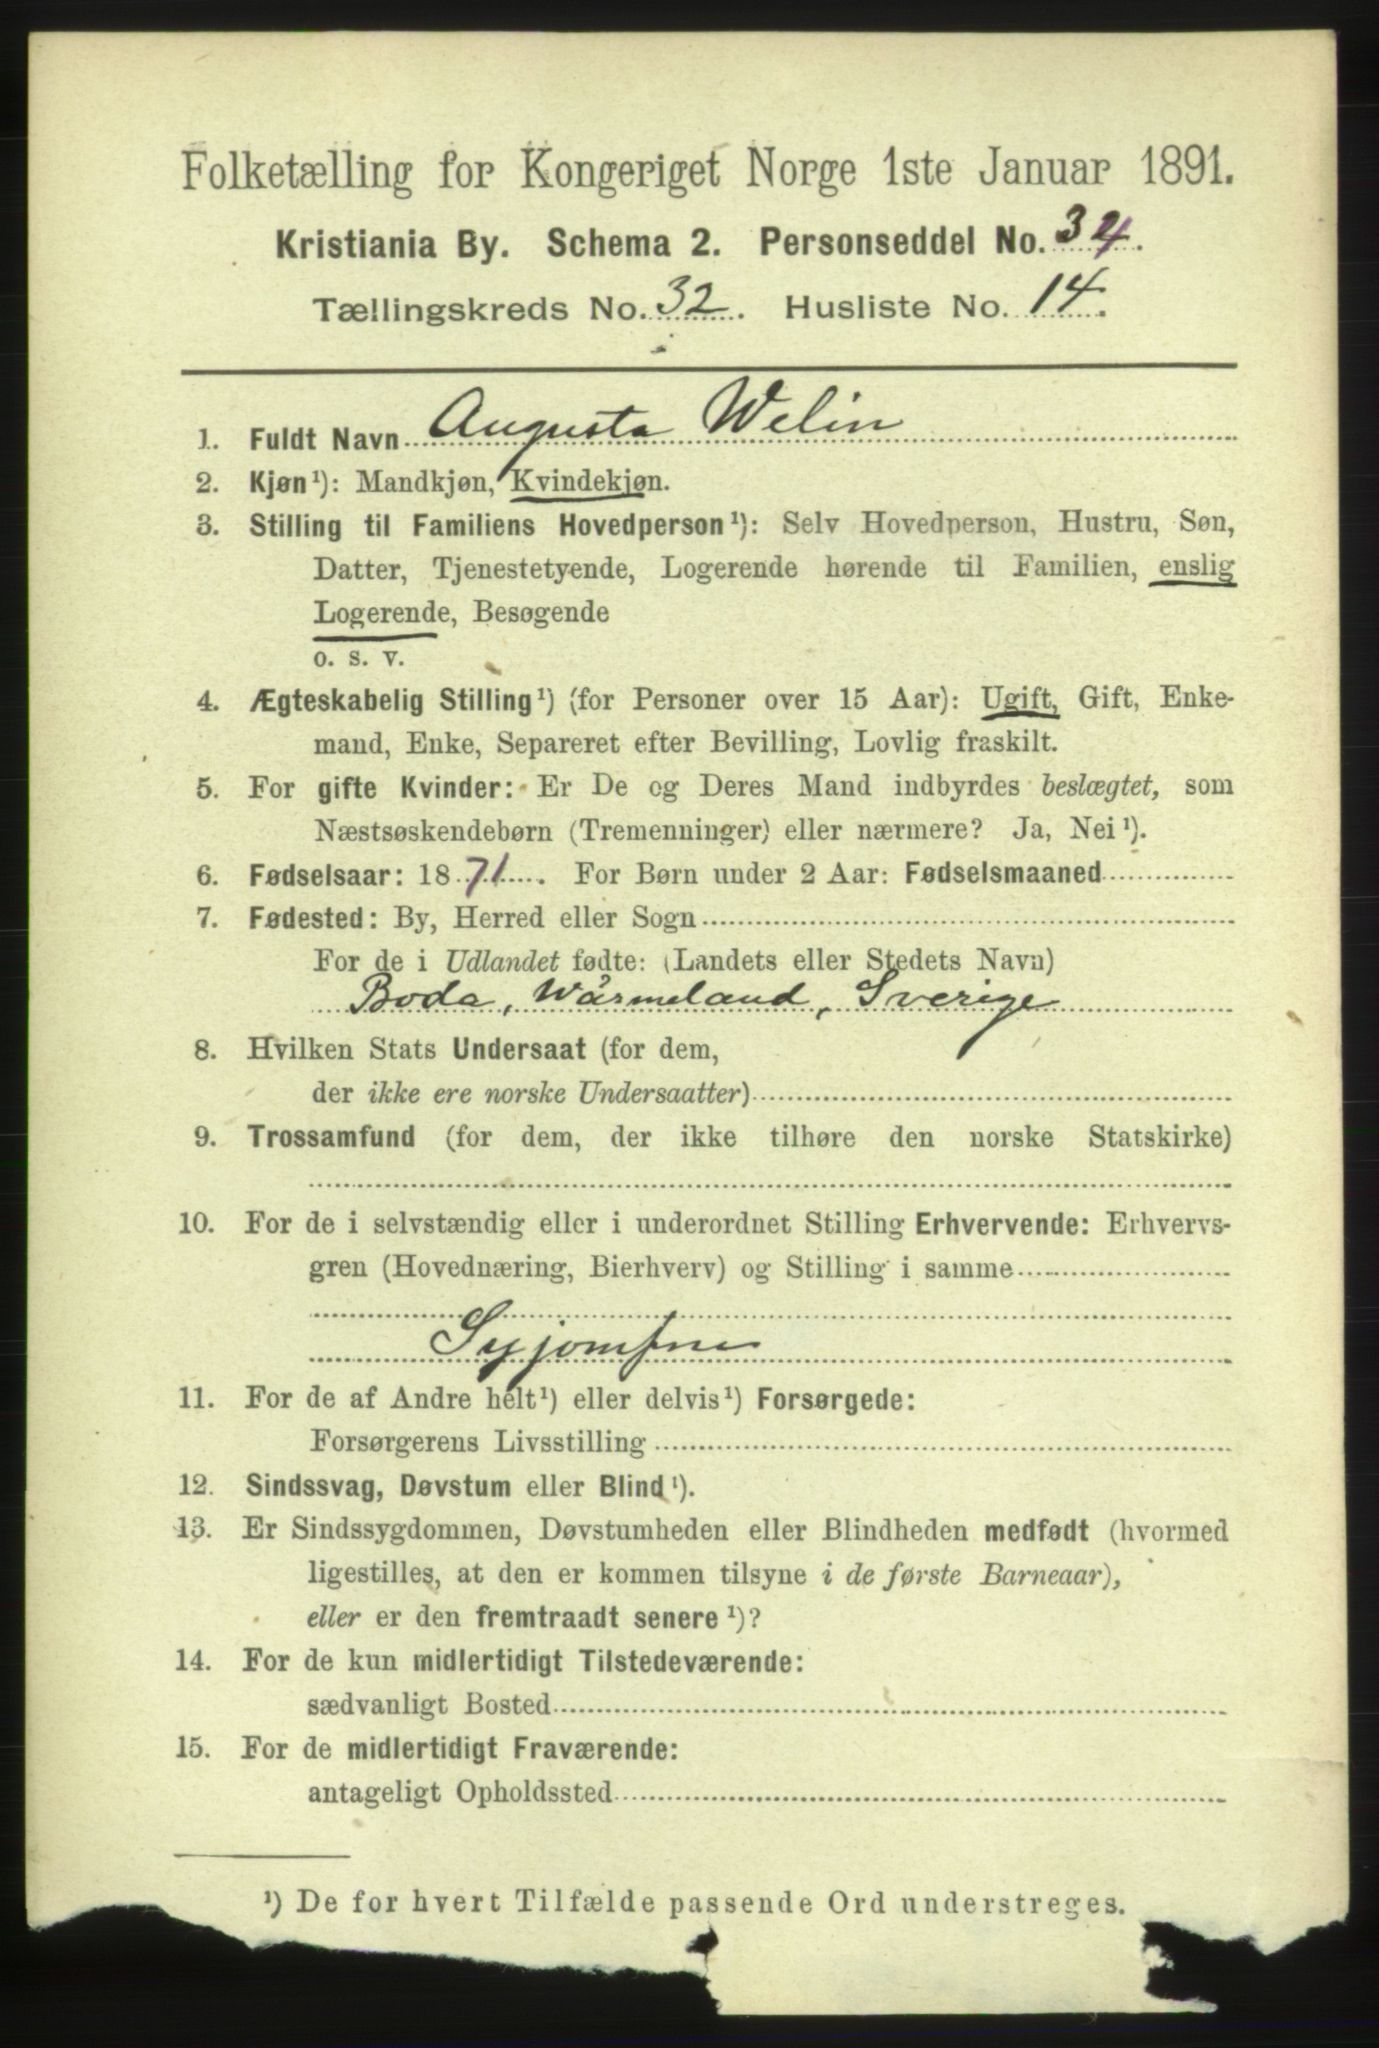 Folketælling for Kongeriget Norge 1ste Januar 1891.
Kristiania By. Schema 2. Personseddel No. 34.
Tællingskreds No. 32. Husliste No. 14.
1. Fuldt Navn Augusta Welin
2. Kjøn¹): Mandkjøn, Kvindekjøn.
3. Stilling til Familiens Hovedperson¹): Selv Hovedperson, Hustru, Søn,
Datter, Tjenestetyende, Logerende hørende til Familien, enslig
Logerende, Besøgende
o. s. v.
4. Ægteskabelig Stilling¹) (for Personer over 15 Aar): Ugift, Gift, Enke-
mand, Enke, Separeret efter Bevilling, Lovlig fraskilt.
5. For gifte Kvinder: Er De og Deres Mand indbyrdes beslægtet, som
Næstsøskendebørn (Tremenninger) eller nærmere? Ja, Nei¹).
6. Fødselsaar: 1871. For Børn under 2 Aar: Fødselsmaaned
7. Fødested: By, Herred eller Sogn
For de i Udlandet fødte: (Landets eller Stedets Navn)
Boda, Wärmeland, Sverige
8. Hvilken Stats Undersaat (for dem,
der ikke ere norske Undersaatter)
9. Trossamfund (for dem, der ikke tilhøre den norske Statskirke)
10. For de i selvstændig eller i underordnet Stilling Erhvervende: Erhvervs-
gren (Hovednæring, Bierhverv) og Stilling i samme
Syjomfru
11. For de af Andre helt¹) eller delvis¹) Forsørgede:
Forsørgerens Livsstilling
12. Sindssvag, Døvstum eller Blind¹).
13. Er Sindssygdommen, Døvstumheden eller Blindheden medfødt (hvormed
ligestilles, at den er kommen tilsyne i de første Barneaar),
eller er den fremtraadt senere¹)?
14. For de kun midlertidigt Tilstedeværende:
sædvanligt Bosted
15. For de midlertidigt Fraværende:
antageligt Opholdssted
¹) De for hvert Tilfælde passende Ord understreges.